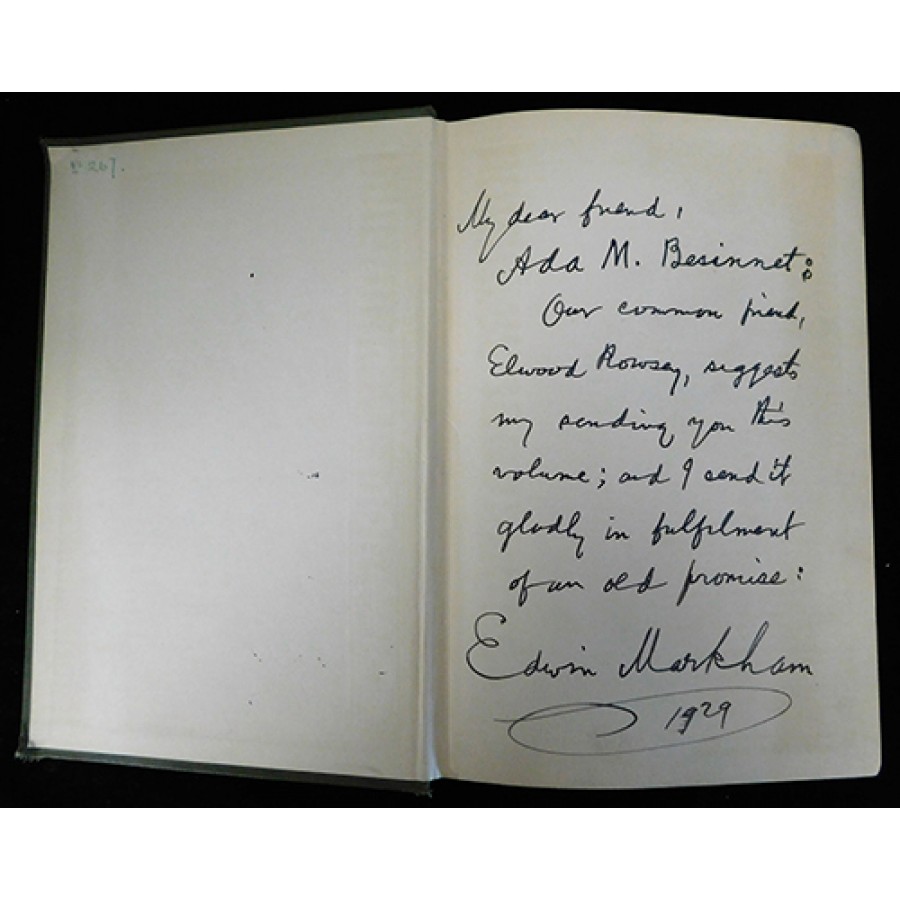 My dear friend,
Ada M. Besinnet:
Our common friend,
Elwood Rowsey, suggests
my sending you this
volume; and I send it
gladly in fulfilment
of an old promise:
Edwin Markham
1929